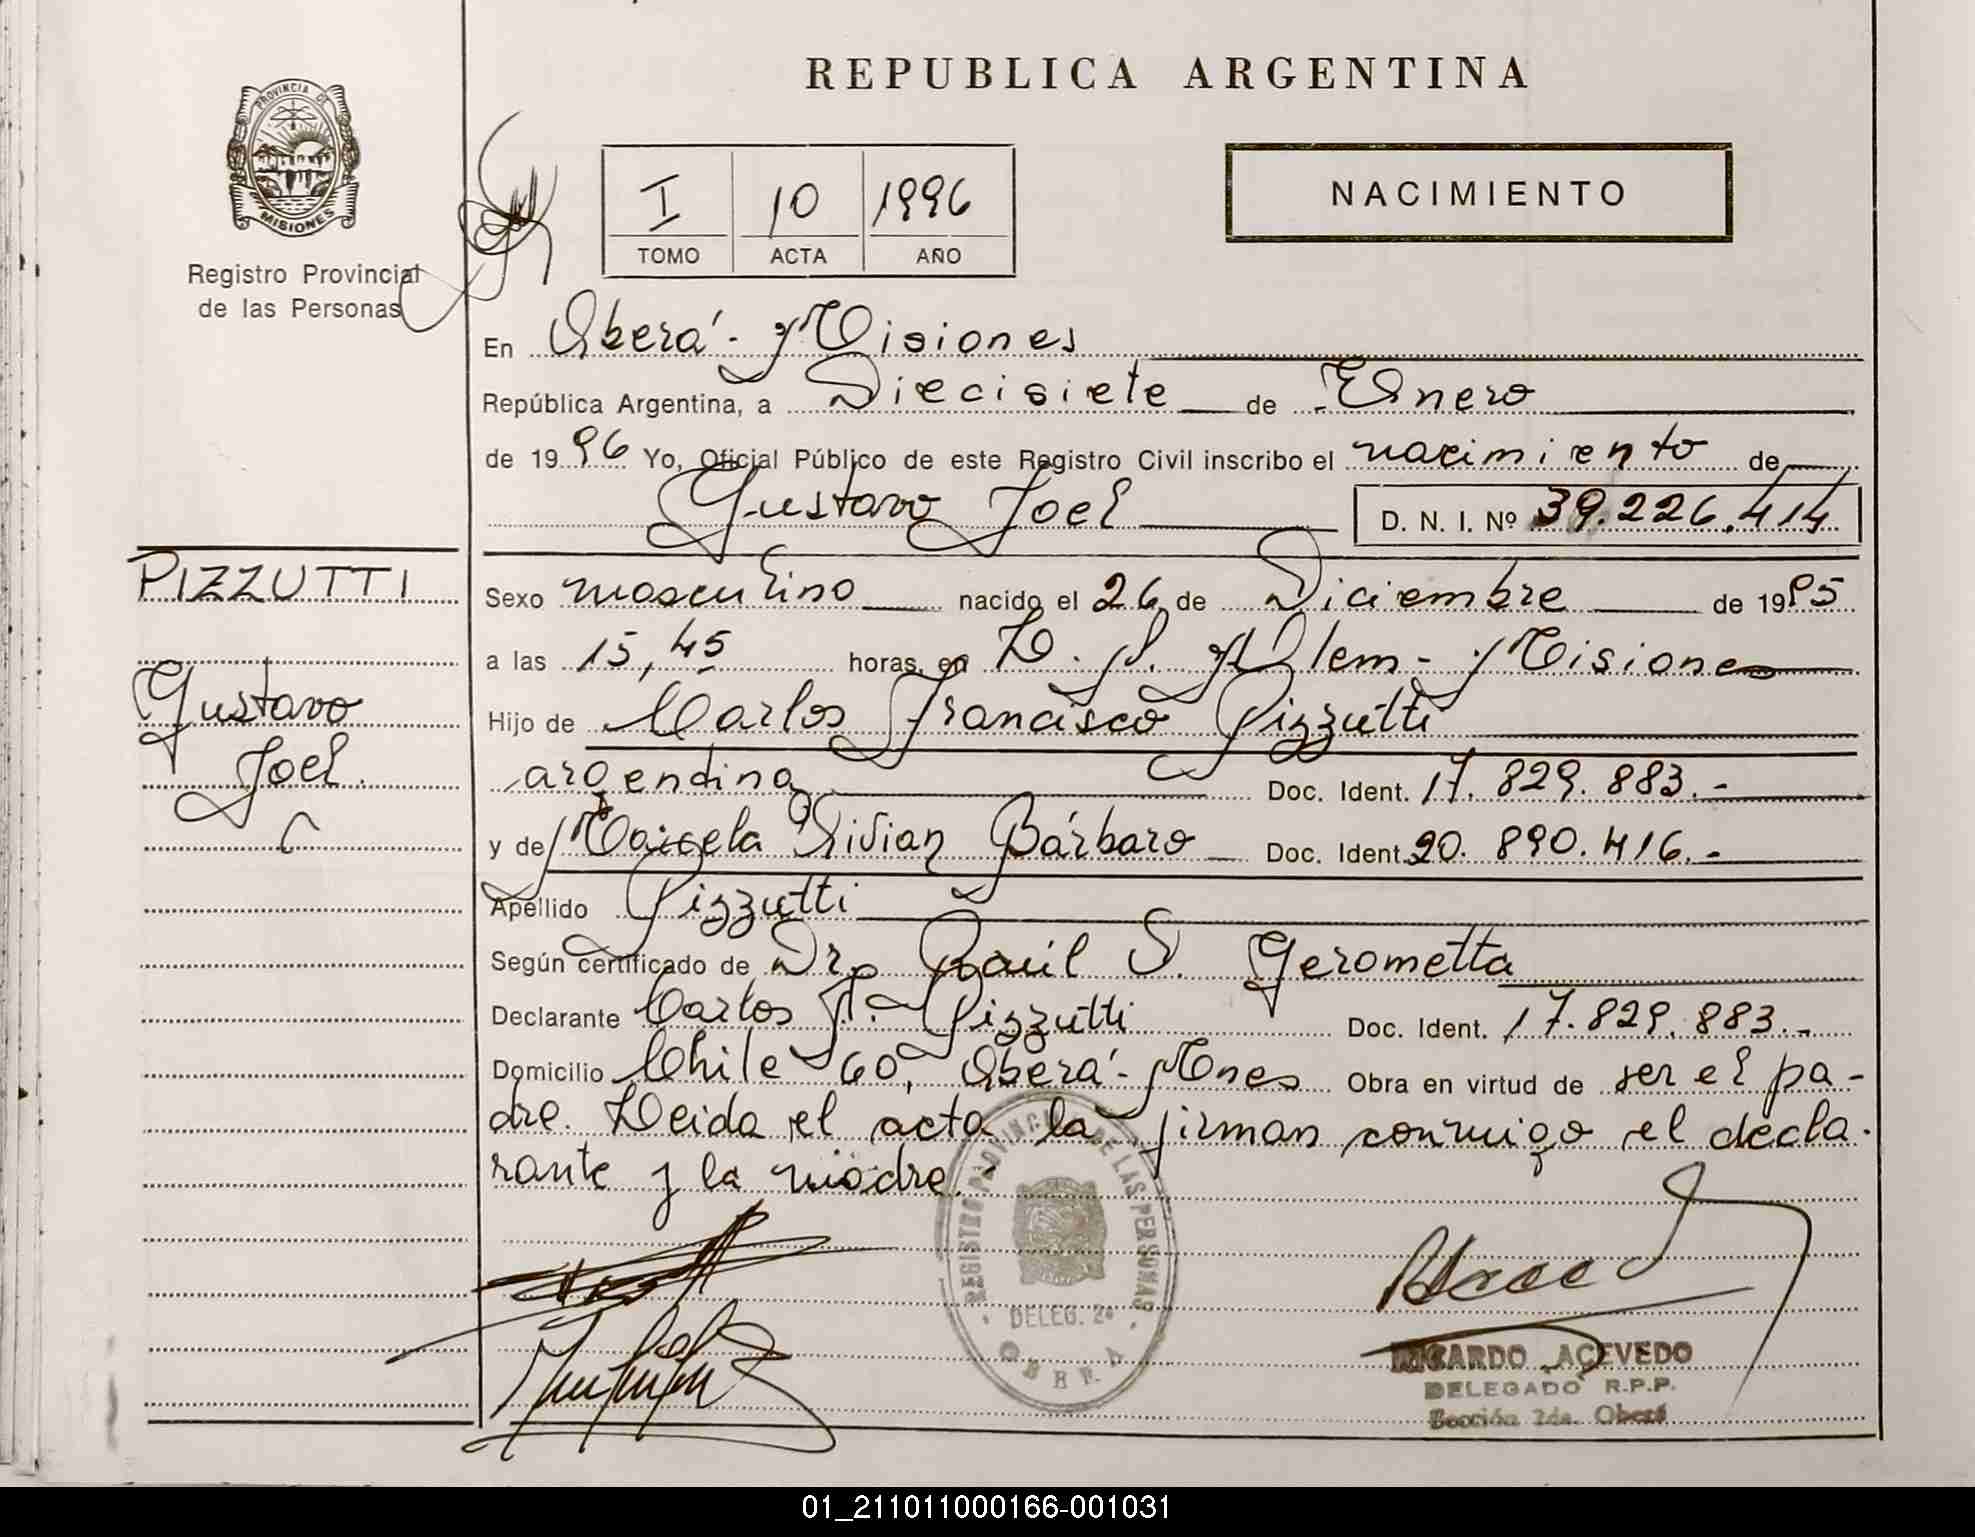 REPUBLICA ARGENTINA
PROVINCIA DE
MISIONES
Registro Provincial
de las Personas
I 10 1996
TOMO ACTA AÑO
NACIMIENTO
En Oberá - Misiones
República Argentina, a Diecisiete de Enero
de 1996 Yo, Oficial Público de este Registro Civil inscribo el nacimiento de
Gustavo Joel D. N. I. Nº 39.226.414
PIZZUTTI
Gustavo
Joel.
Sexo masculino nacido el 26 de Diciembre de 1995
a las 15,45 horas, en L. N. Alem - Misiones
Hijo de Carlos Francisco Pizzutti
argentina Doc. Ident. 17.829.883.-
y de Marcela Vivian Bárbaro Doc. Ident. 20.890.416.-
Apellido Pizzutti
Según certificado de Dr. Raúl S. Gerometta
Declarante Carlos F. Pizzutti Doc. Ident. 17.829.883.-
Domicilio Chile 60, Oberá - Mnes Obra en virtud de ser el pa-
dre. Leida el acta la firman conmigo el decla-
rante y la madre.-
REGISTRO PROVINCIAL DE LAS PERSONAS
DELEG. 2ª
OBERA
RICARDO ACEVEDO
DELEGADO R.P.P.
Sección 2da. Oberá
01_211011000166-001031